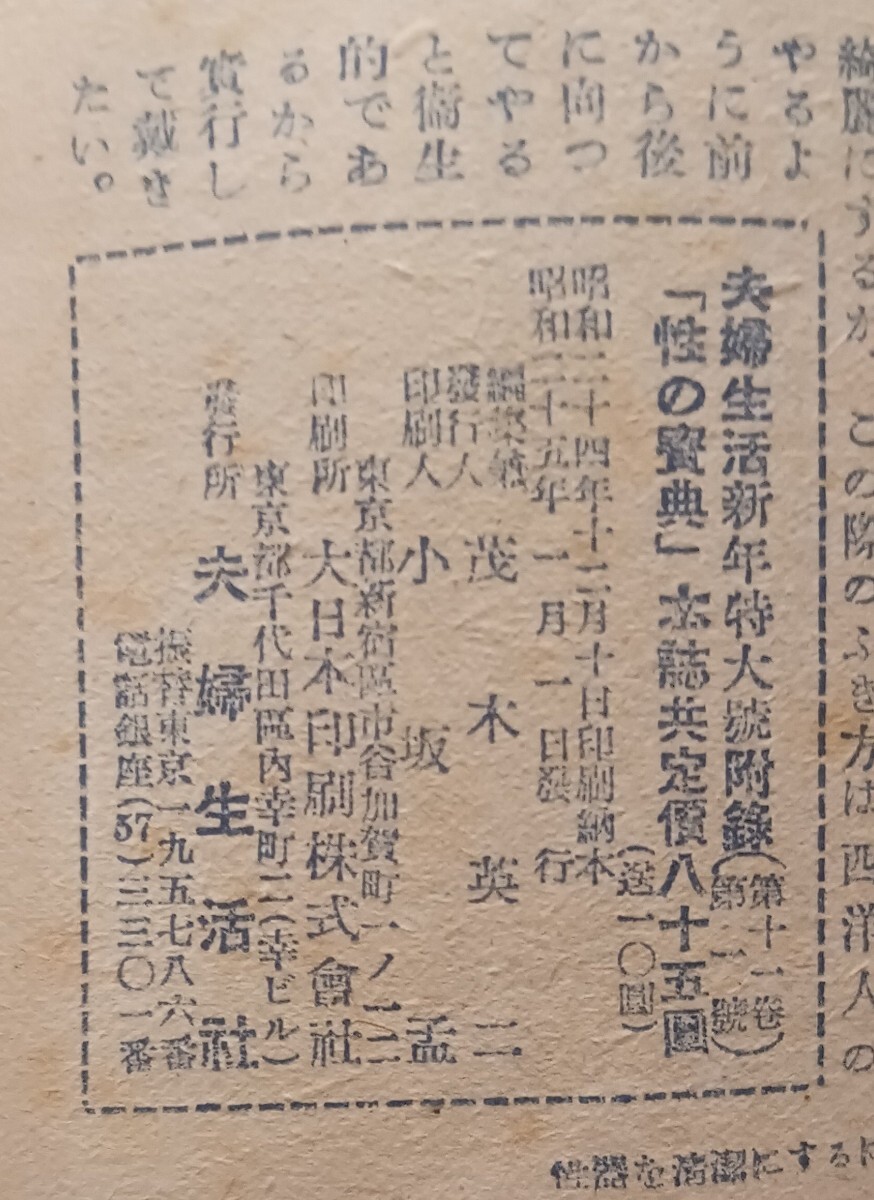 綺麗にするか、この際のふき方は西洋人の
やるよ
うに前
から後
に向つ
てやる
と衞生
的であ
るから
實行し
て戴き
たい。
夫婦生活新年特大號附錄(第十一卷第一號)
「性の寳典」本誌共定價八十五圓
(送一〇圓)
昭和二十四年十二月十日印刷納本
昭和二十五年一月一日發行
編集兼
發行人 茂木英二
印刷人 小坂孟
東京都新宿區市谷加賀町一ノ一二
印刷所 大日本印刷株式會社
東京都千代田區內幸町二(幸ビル)
發行所 夫婦生活社
振替東京一九五七八六番
電話銀座(57)三三〇一番
性器を清潔にするに